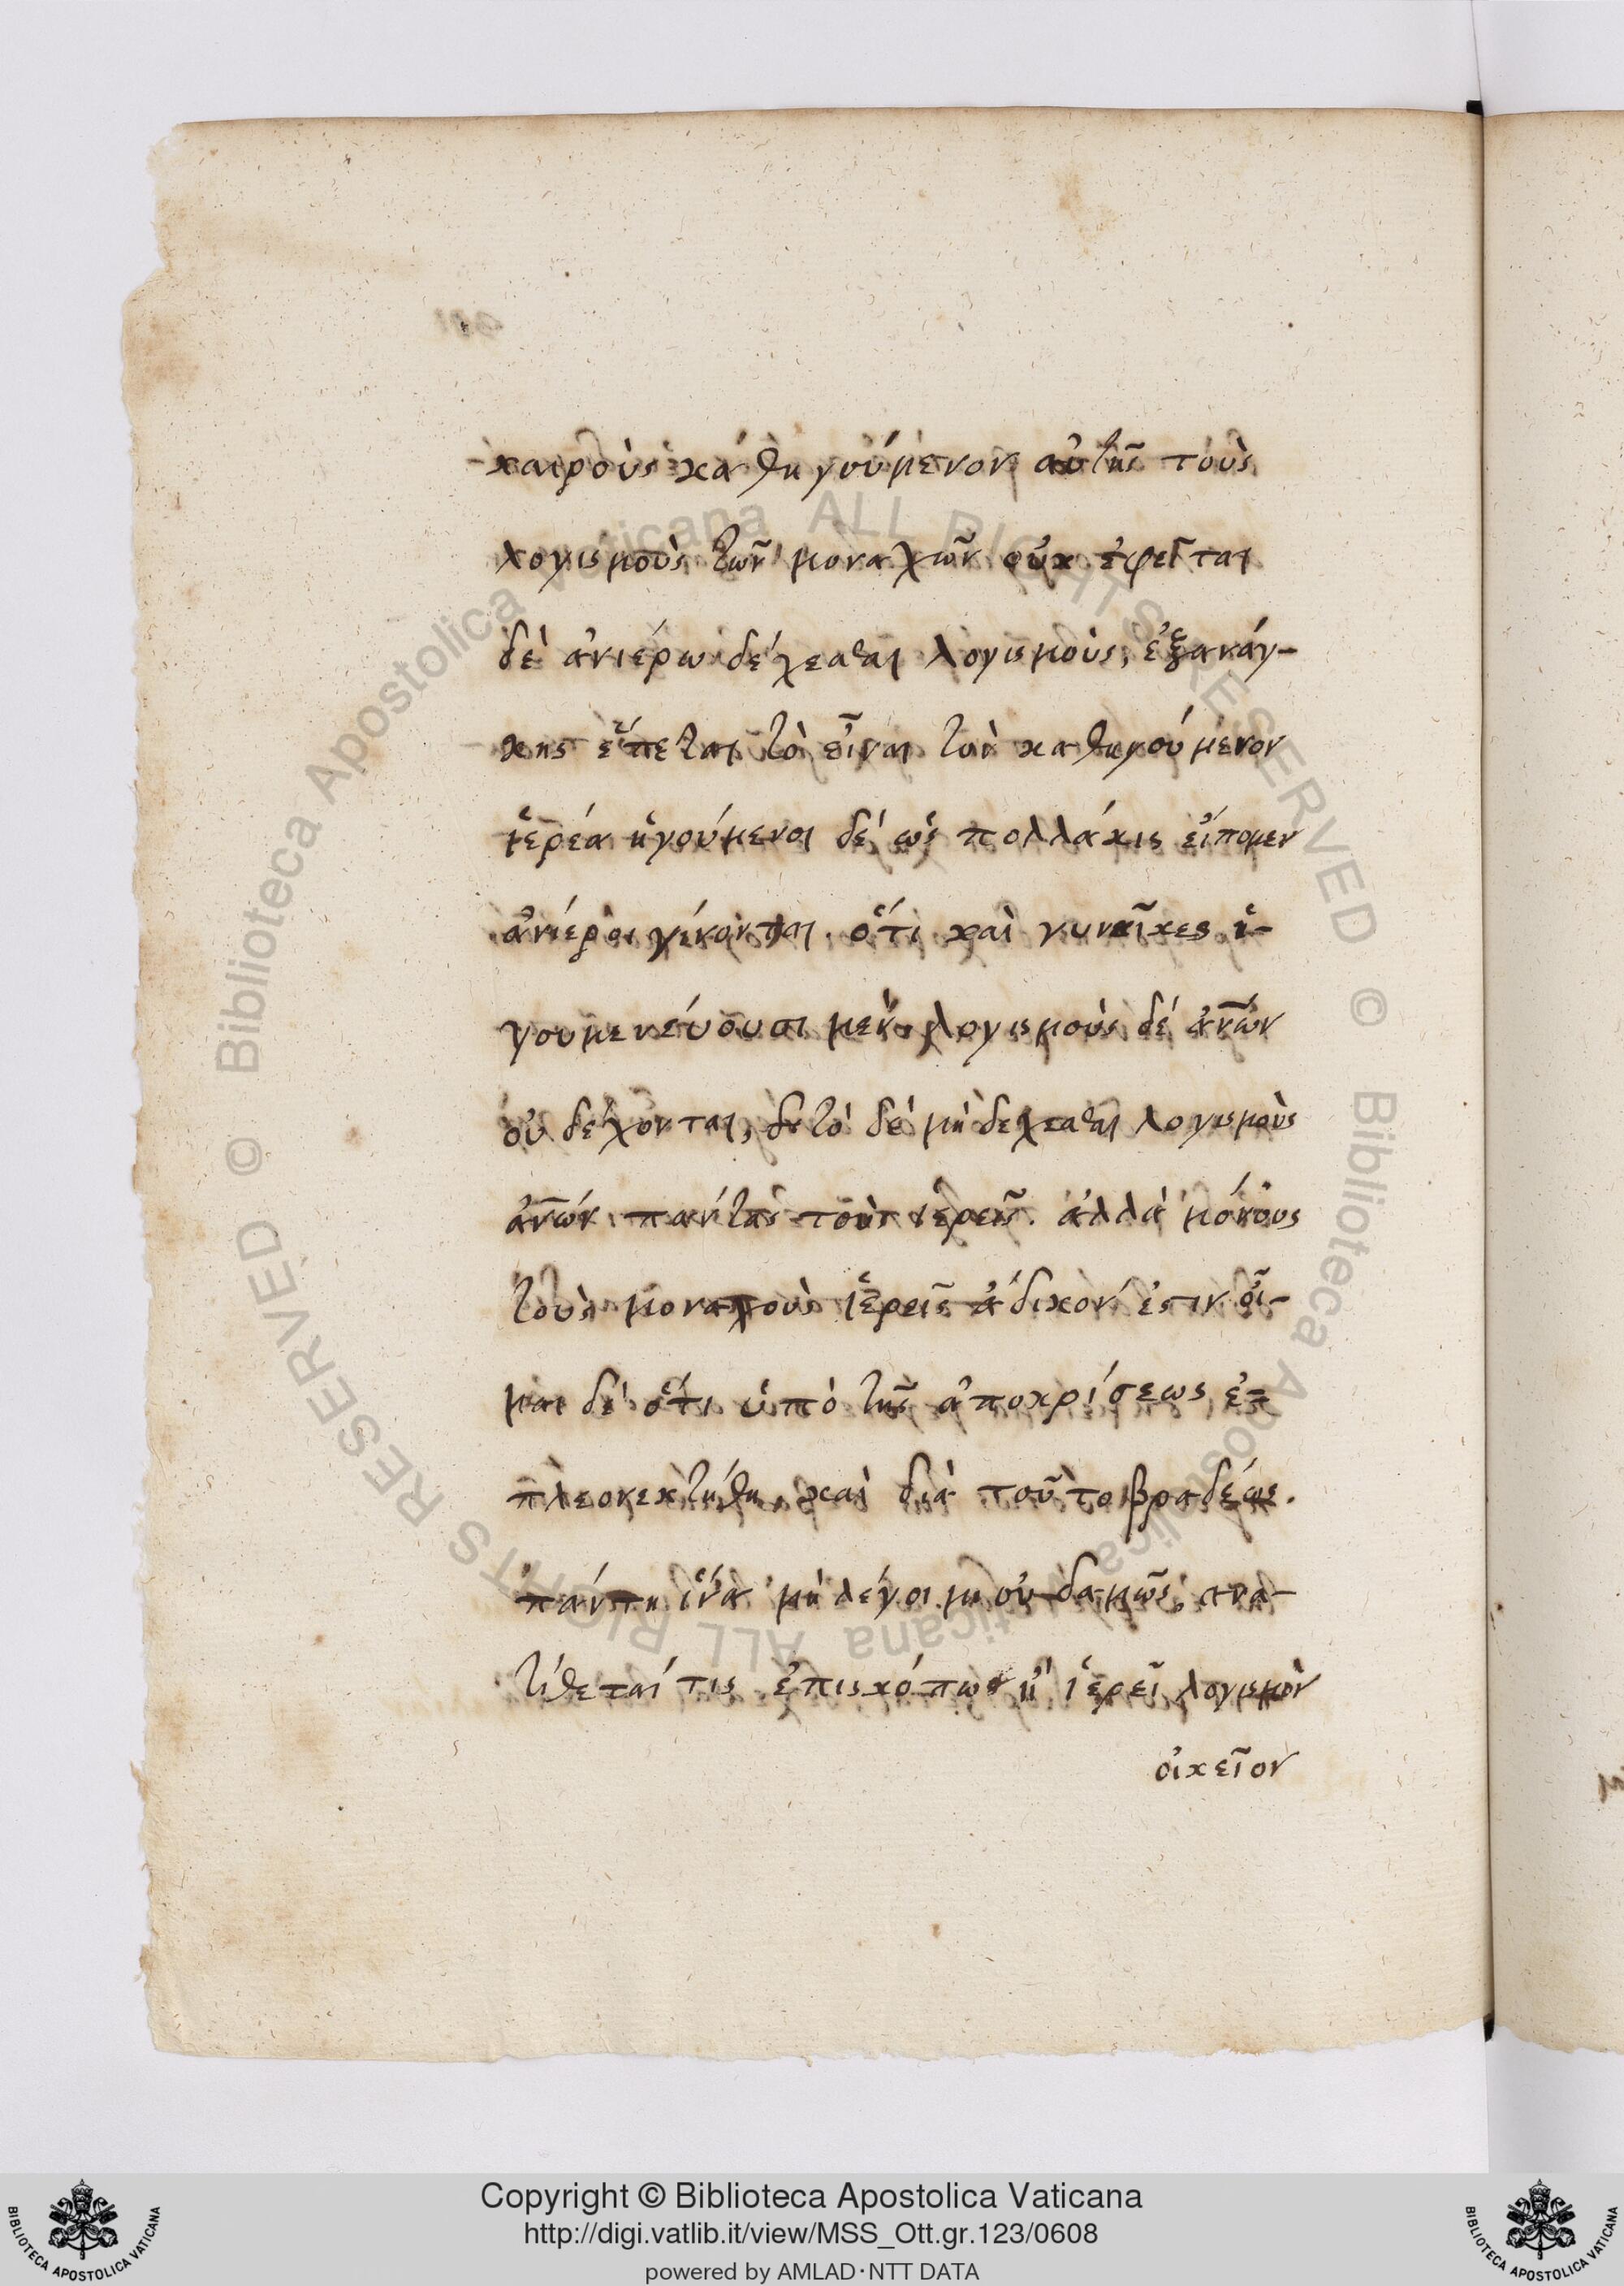 καιροὺς κάθηγούμενον αὐτῆς τοὺς
λογισμοὺς τῶν μοναχῶν οὐκ ἐφεῖται
δὲ ἀνιέρω δέχεσθαι λογισμοὺς, ἐξανάγ-
κης ἕπεται τὸ εἶναι τὸν καθηγούμενον
ἱερέα ἡγούμενοι δέ ὡς πολλάκις εἴπομεν
ἀνίεροι γίνονται. ὅτι καὶ γυναῖκες ἡ-
γουμενεύουσι μὲν, λογισμοὺς δέ ἀν̅ων
οὐ δέχονται, τὸ δέ μὴ δέχεσθαι λογισμοὺς
ἀν̅ων πάντας τοὺς ἱερεῖς. ἀλλὰ μόνους
τοὺς μοναχοὺς ἱερεῖς ἄδικόν ἐστιν οἶ-
μαι δέ ὅτι ὑπὸ τῆς ἀποκρίσεως ἐ-
πλεονεκτήθη, καὶ διὰ τοῦτο βραδέως.
πάντη ἵνα μὴ λέγοιμι οὐδαμῶς, ανα-
τίθεταί τις ἐπισκόπω ἢ ἱερεῖ λογισμὸν
οἰκεῖον
Copyright © Biblioteca Apostolica Vaticana
http://digi.vatlib.it/view/MSS_Ott.gr.123/0608
powered by AMLAD·NTT DATA
© Biblioteca Apostolica Vaticana ALL RIGHTS RESERVED
© Biblioteca Apostolica Vaticana ALL RIGHTS RESERVED
BIBLIOTECA APOSTOLICA VATICANA
BIBLIOTECA APOSTOLICA VATICANA